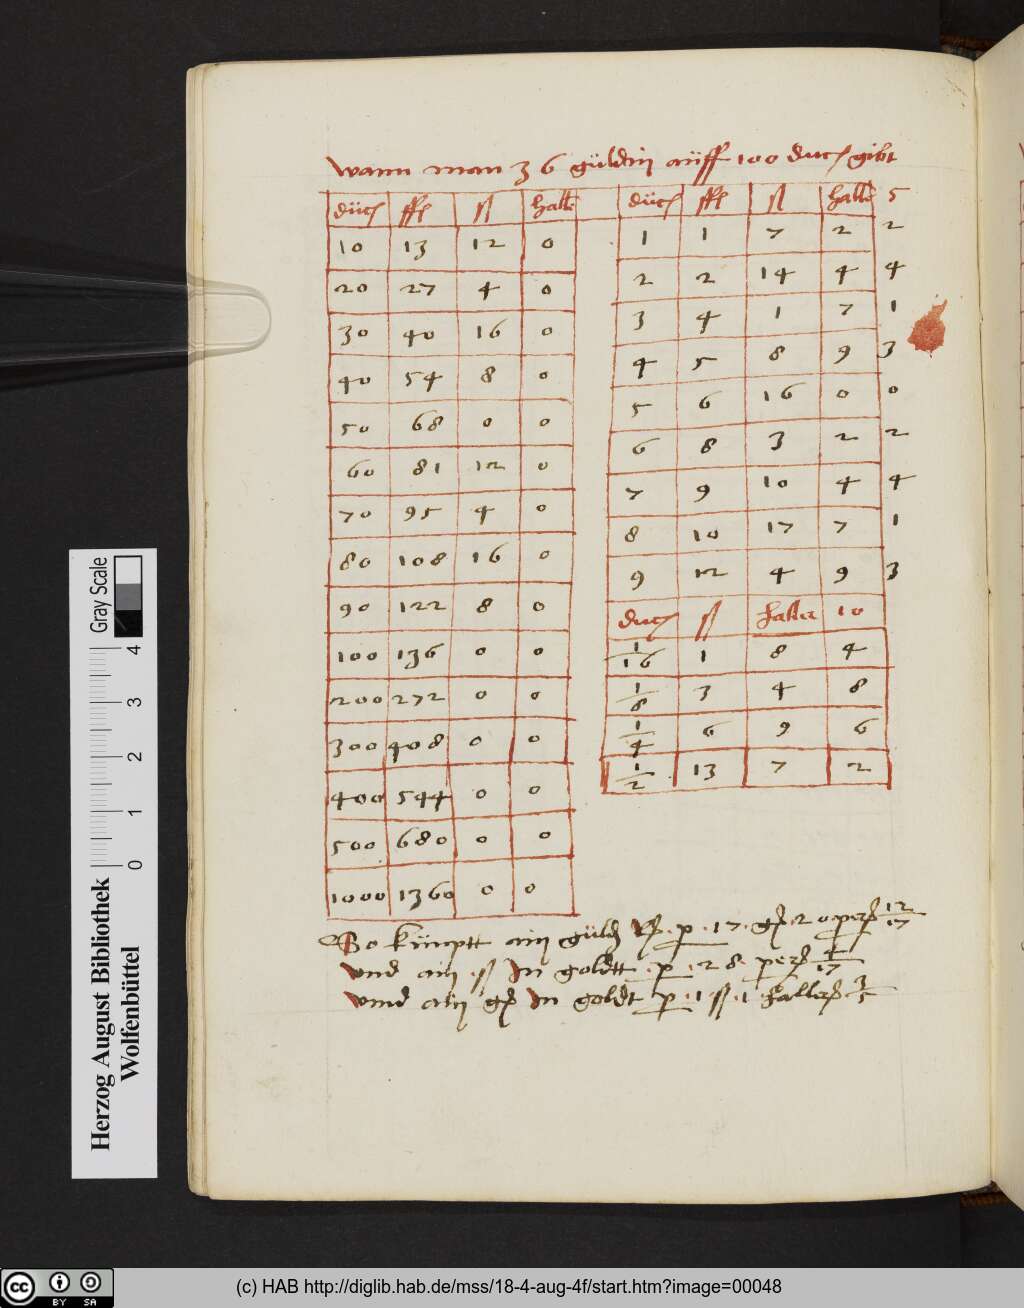 wann man 36 güldin auff 100 duc gibt
duc ffl ß hall
10 13 12 0
20 27 4 0
30 40 16 0
40 54 8 0
50 68 0 0
60 81 12 0
70 95 4 0
80 108 16 0
90 122 8 0
100 136 0 0
200 272 0 0
300 408 0 0
400 544 0 0
500 680 0 0
1000 1360 0 0
duc ffl ß hall 5
1 1 7 2 2
2 2 14 4 4
3 4 1 7 1
4 5 8 9 3
5 6 16 0 0
6 8 3 2 2
7 9 10 4 4
8 10 17 7 1
9 12 4 9 3
duc ß haller 10
1/16 1 8 4
1/8 3 4 8
1/4 6 9 6
1/2 13 7 2
So kümptt ain p 17 12/17
und ain ß In goldtt p 28 4/17
unnd ain In goldt p 1 ß 1 haller 3/5
Herzog August Bibliothek
Wolfenbüttel
Gray Scale
0 1 2 3 4
cc BY SA
(c) HAB http://diglib.hab.de/mss/18-4-aug-4f/start.htm?image=00048